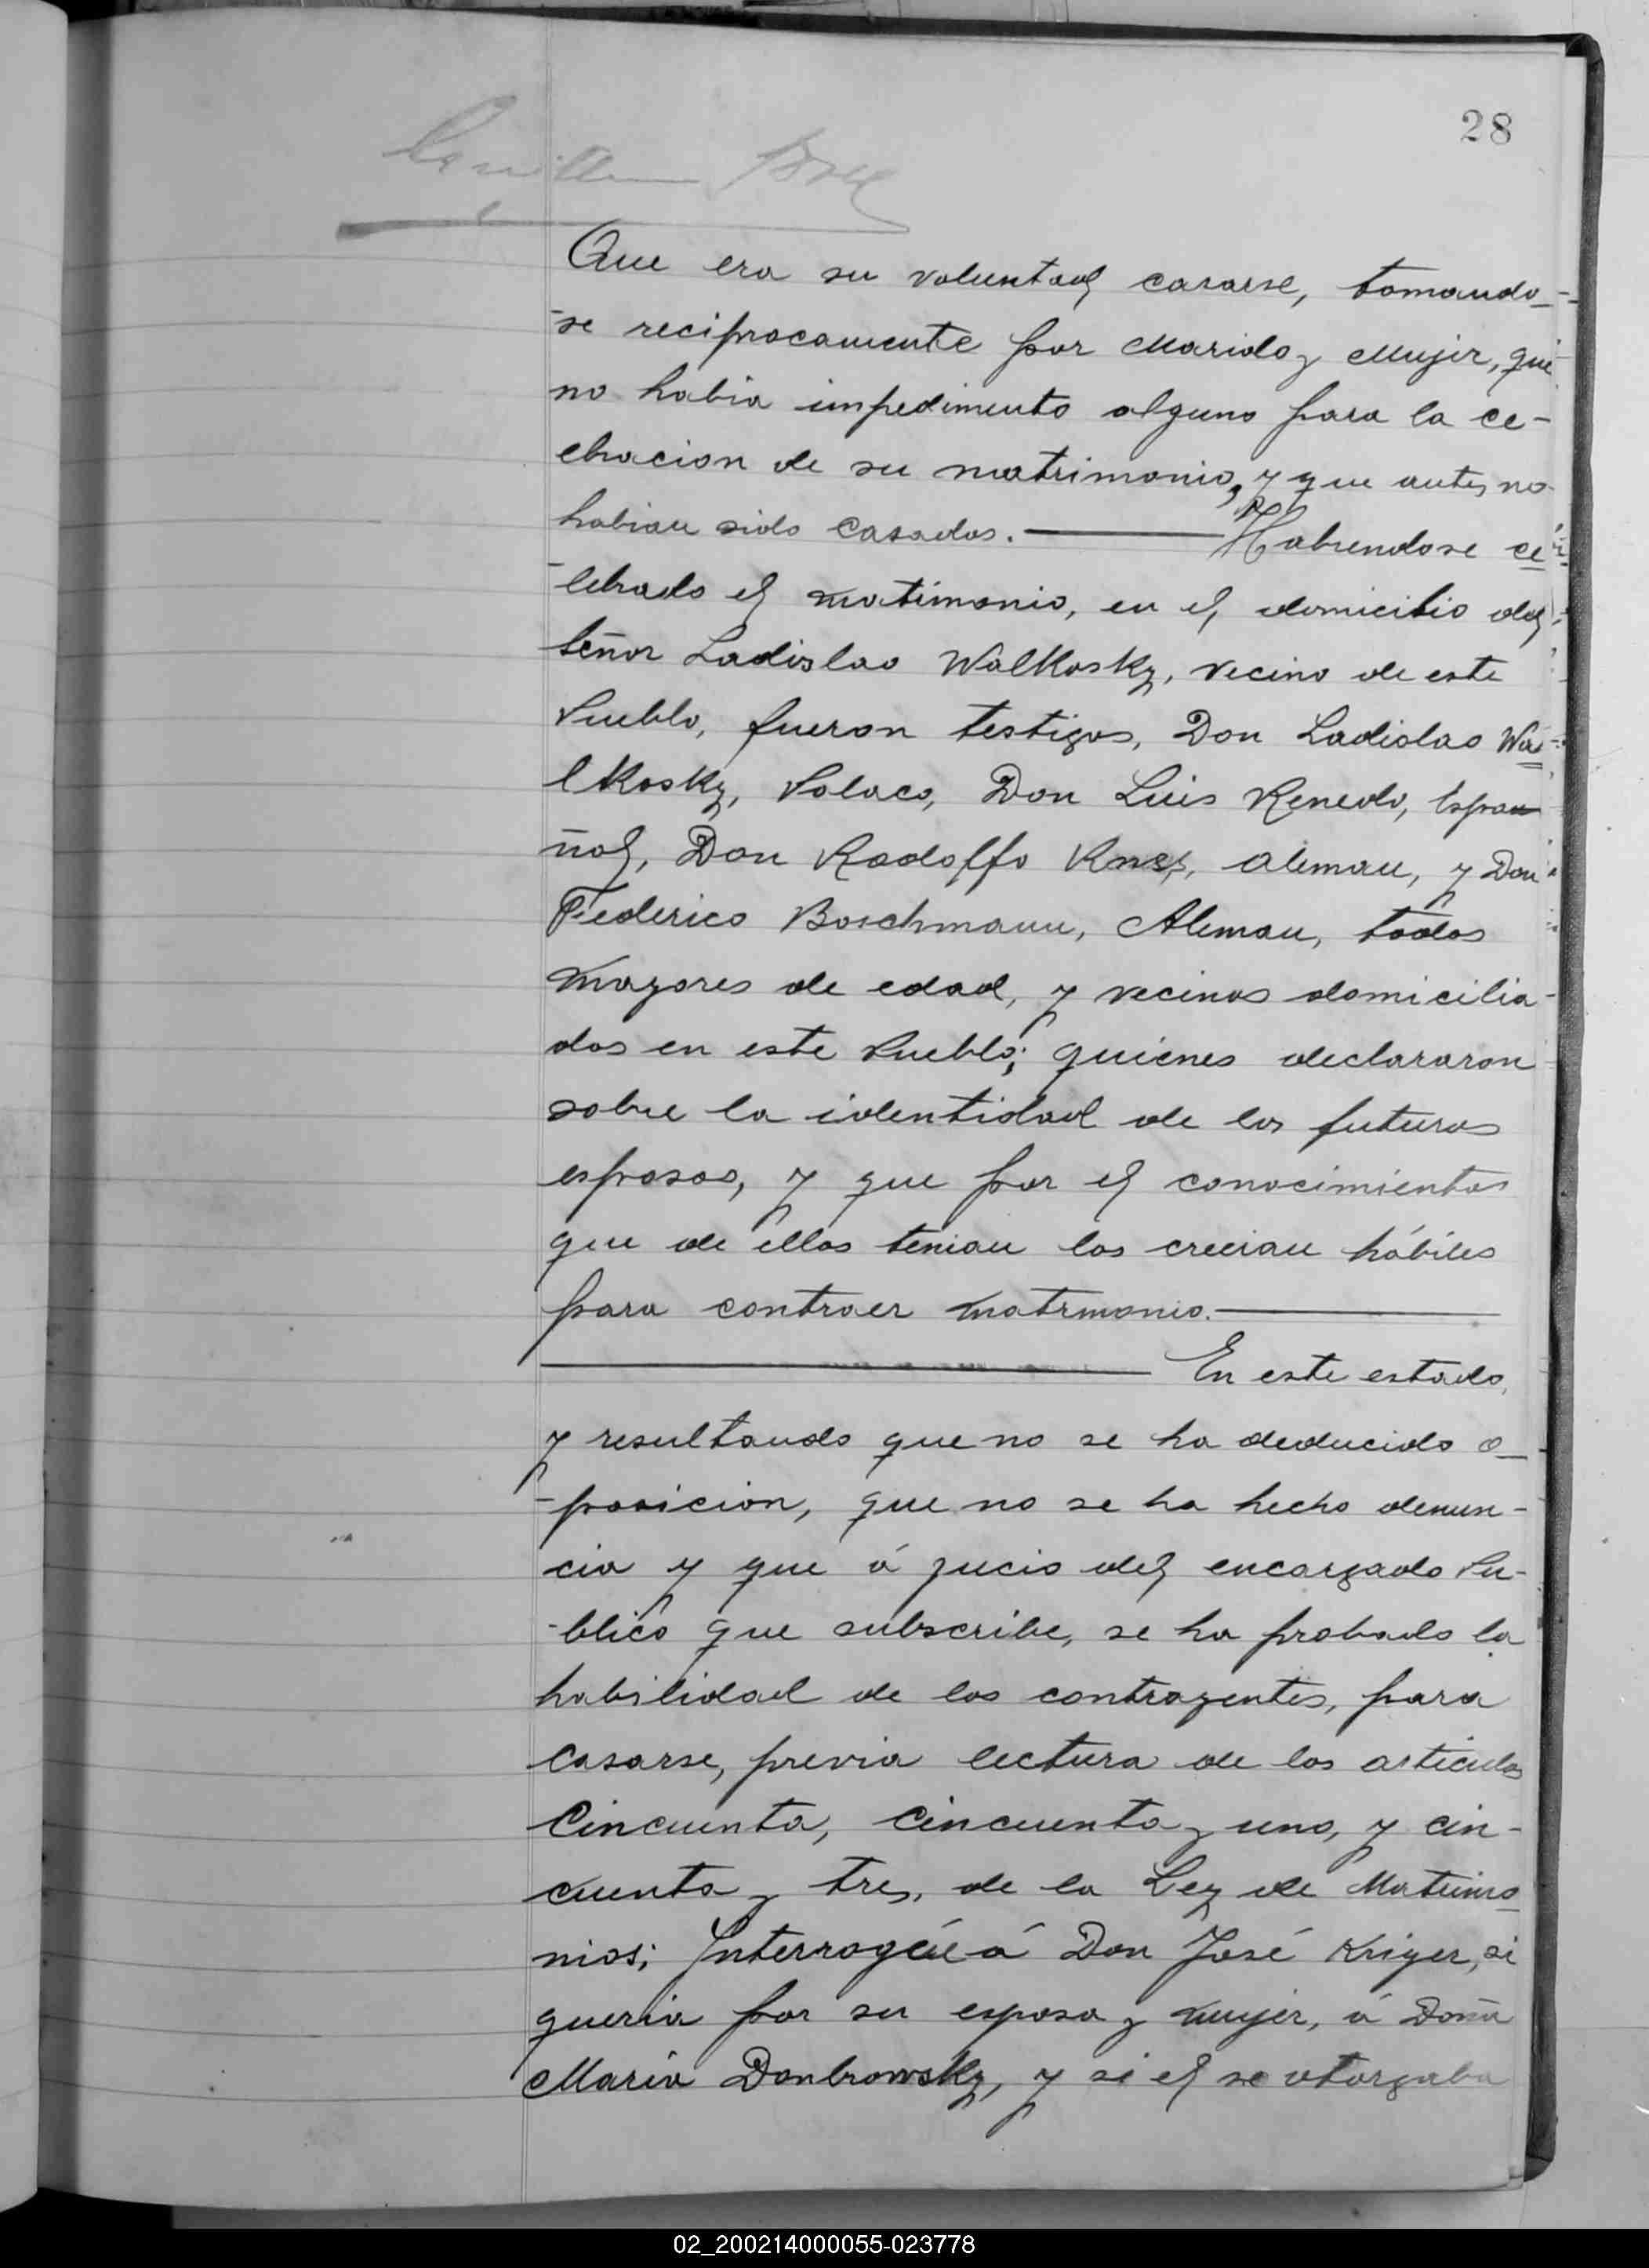 28
Que era su voluntad casarse, tomando-
-se reciprocamente por Marido y Mujer, que
no habia impedimento alguno para la ce-
ebracion de su matrimonio, y que antes no
habian sido Casados. Habiendose ce
-lebrado el matimonio, en el domicilio del
señor Ladislao Walkosky, vecino de este
Pueblo, fueron testigos, Don Ladislao Wa-
lkosky, Polaco, Don Luis Renedo, Espa
ñol, Don Rodolffo, Aleman, y Don
Federico Boschmann, Aleman, todos
mayores de edad, y vecinos domicilia-
dos en este Pueblo; quienes declararon
sobre la identidad de los futuros
esposos, y que por el conocimientos
que de ellos tenian los creeian hábiles
para contraer matrmonio.
En este estado,
y resultando que no se ha deducido o
-posicion, que no se ha hecho denun-
cia y que á jucio del encargado Pu-
-blico que subscribe, se ha probado la
habilidad de los contrayentes, para
casarse, previa lectura de los articulos
Cincuenta, cincuenta y uno, y cin-
cuenta y tres, de la Ley de Matrimo
nios; Interrogué á Don José Kriger, si
queria por su esposa y mujer, á Doña
Maria Donbrowsky, y si el se otorgaba
02_200214000055-023778